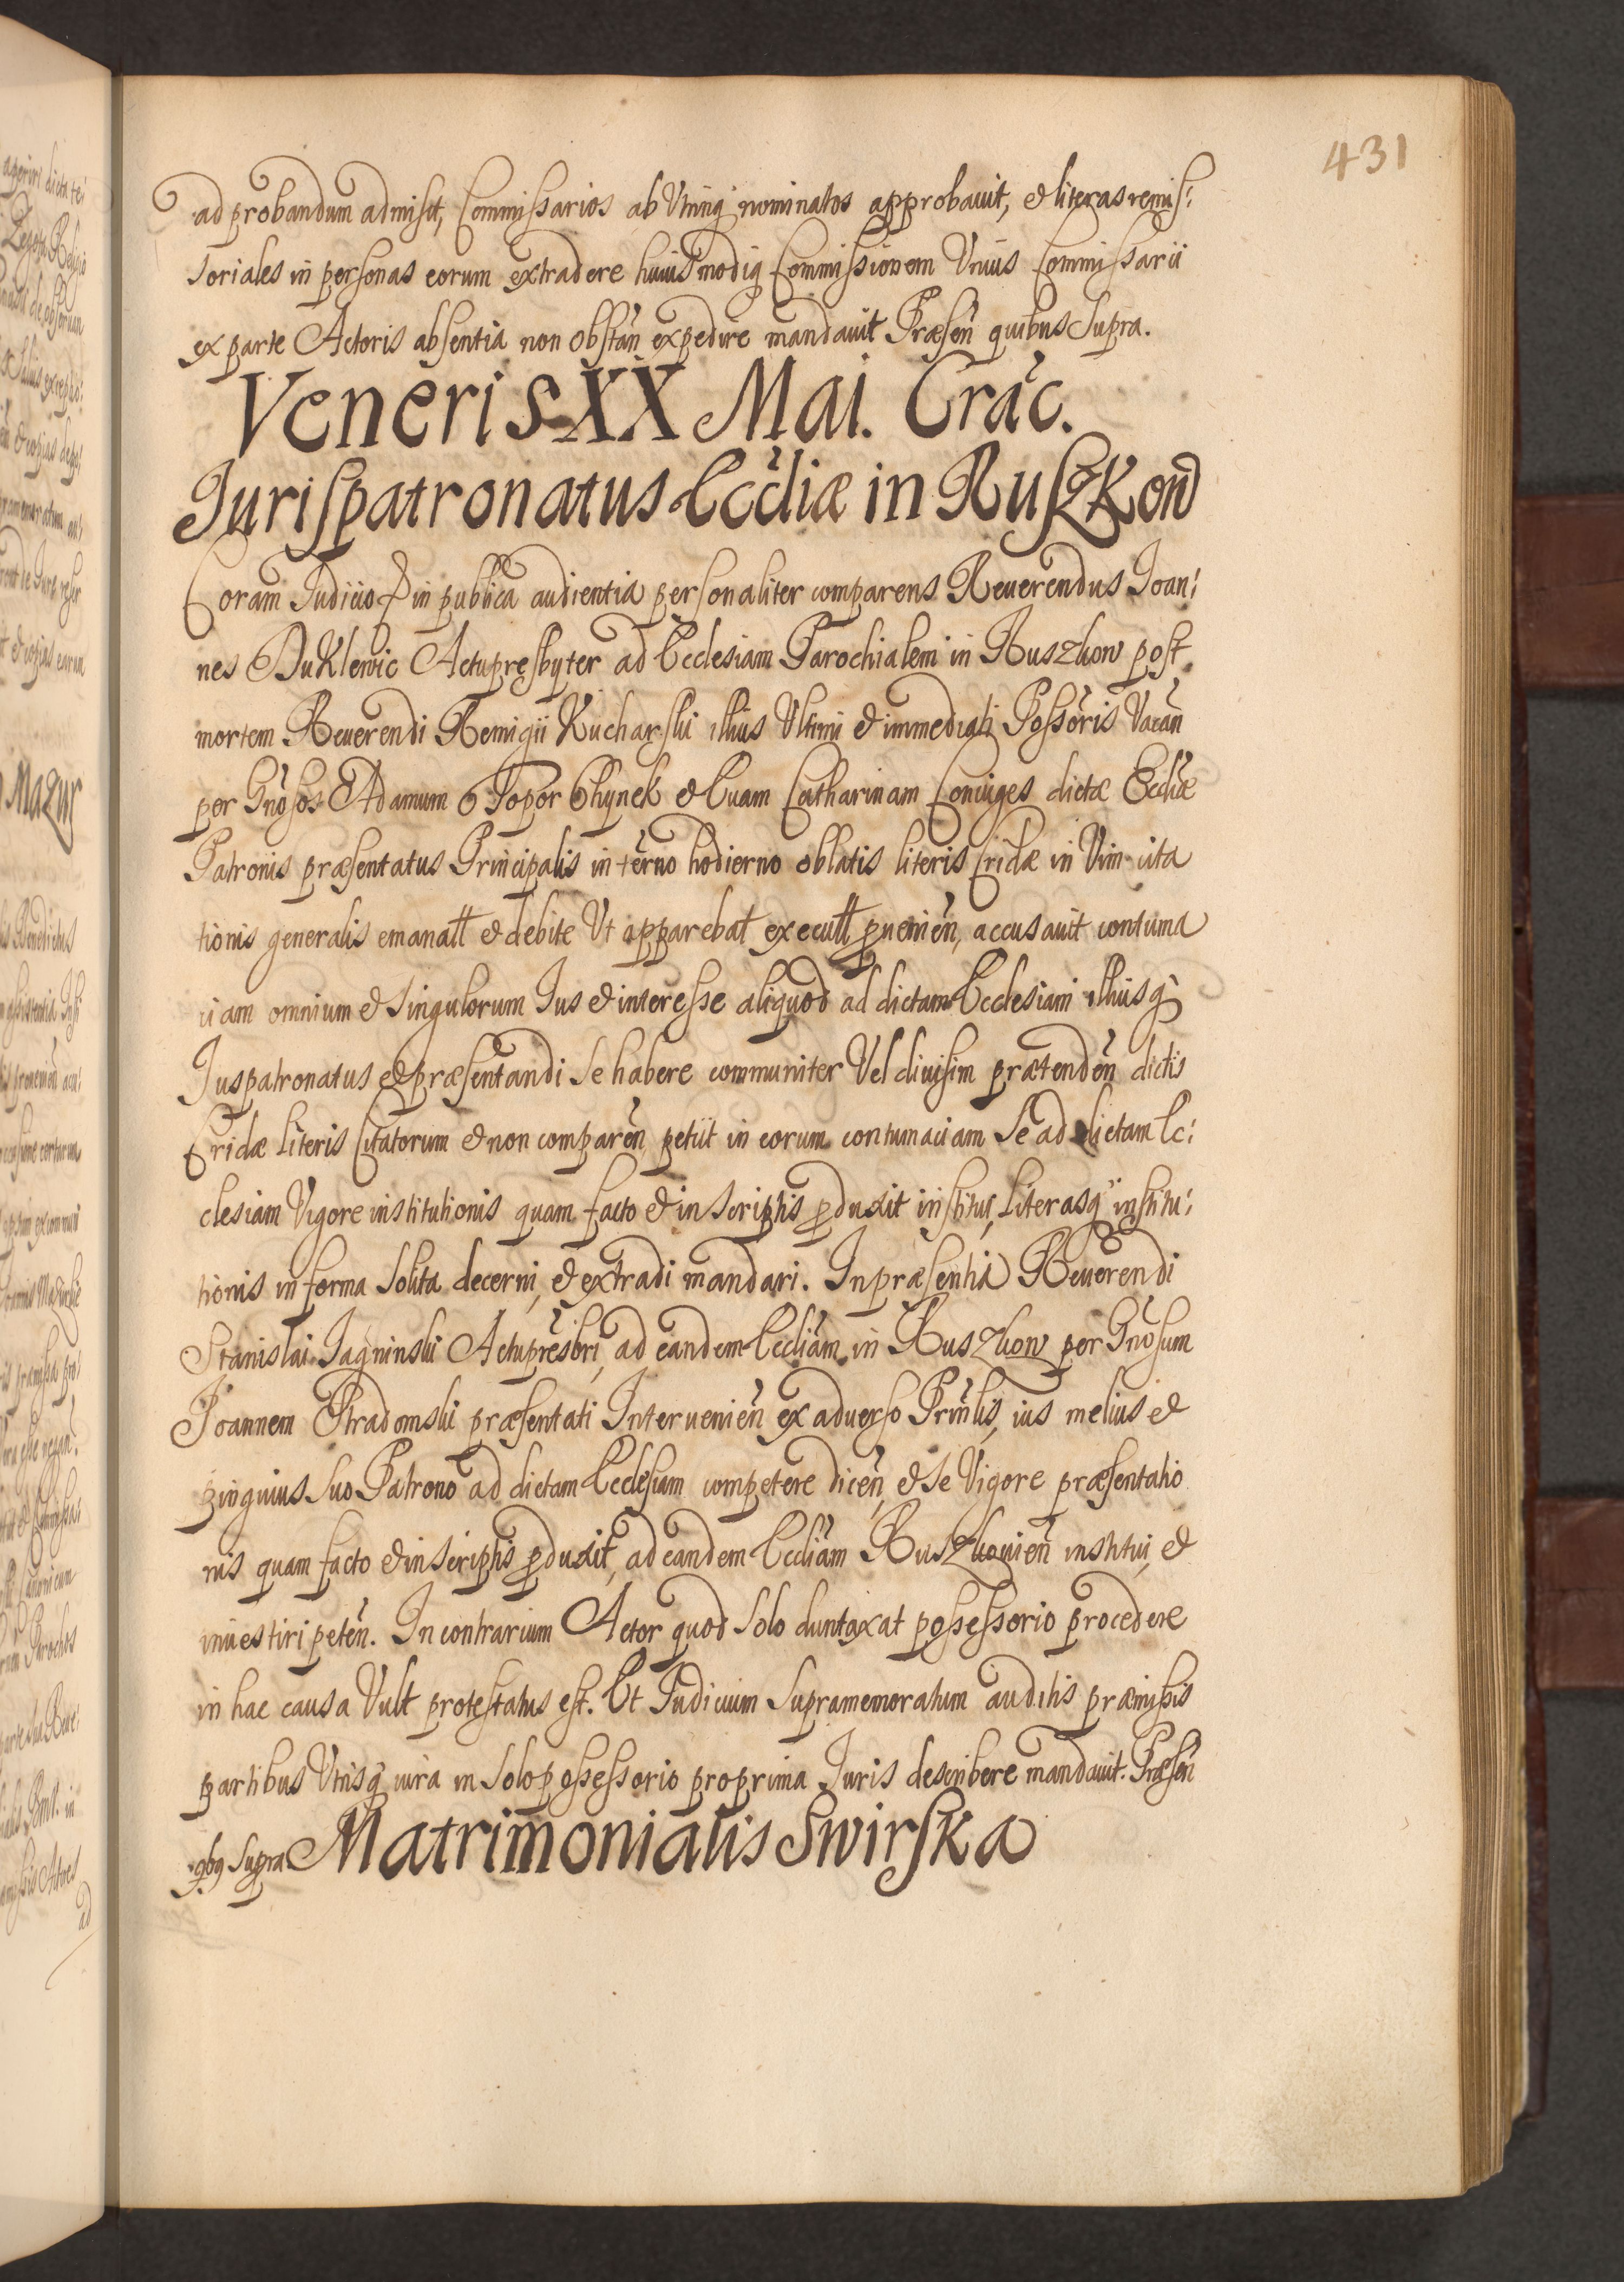 431
ad probandum admisit, Commissarios ab Utrinq nominatos approbauit, & literas remis:
soriales in personas eorum extradere huiusmodiq Commissionem Unius Commissarii
ex parte Actoris absentia non obstan̄ expedire mandauit Præsen̄ quibus Supra.
Veneris XX Mai. Crac.
Jurispatronatus Eccliæ in Ruszkow
Coram Judicio & in publica audientia personaliter comparens Reuerendus Joan:
nes Duklewic Actupręsbyter ad Ecclesiam Parochialem in Ruszkow post
mortem Reuerendi Remigii Kucharski illius Ultimi & immediati Possoris Vacan̄
per Gnosos Adamum Topor Chynek & Euam Catharinam Coniuges dictæ Eccliæ
Patronis præsentatus Principalis in terno hodierno oblatis literis Cridæ in Vim cita
tionis generalis emanatt & debite Ut apparebat executt puenien̄, accusauit contuma
ciam omnium & singulorum Jus & interesse aliquod ad dictam Ecclesiam illiusq
Juspatronatus & præsentandi se habere communiter Vel diuisim prætenden̄ dictis
Cridæ literis Citatorum & non comparen̄ petiit in eorum contumaciam Se ad dictam Ec:
clesiam Vigore institutionis quam facto & in scriptis pduxit institui, Literasq institu:
tionis in forma solita decerni, & extradi mandari. In præsentia Reuerendi
Stanislai Jagninski Actupresbri, ad eandem Eccliam in Ruszkow per Gnosum
Joannem Stradomski præsentati Interuenien̄ ex aduerso Prinlis, ius melius &
pinguius suo Patrono ad dictam Ecclesiam competere dicen̄, & se Vigore præsentatio
nis quam facto & in scriptis pduxit, ad eandem Eccliam Ruszkouien̄ institui, &
inuestiri peten̄. In contrarium Actor quod solo duntaxat possessorio procedere
in hac causa Vult protestatus est. Et Judicium supramemoratum auditis præmissis
partibus Utrisq iura in solo possessorio pro prima Juris describere mandauit. Præsen̄
qbq supra. Matrimonialis Swirska